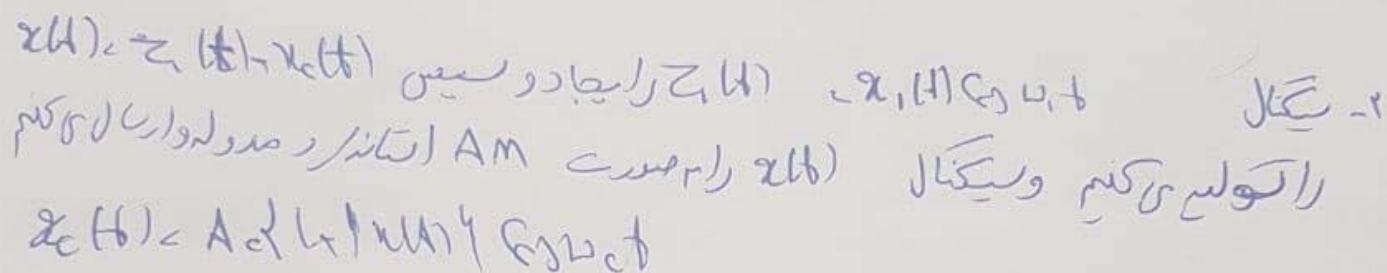 ۲- سیگنال z₁(t) = x₁(t) cos ω₁t را ایجاد و سپس x(t) = z₁(t) + x₂(t)
را تولید می کنیم و سیگنال x(t) را به صورت AM استاندارد مدوله و ارسال می کنیم
x_c(t) = A_c{1+ x(t)} cos ω_c t